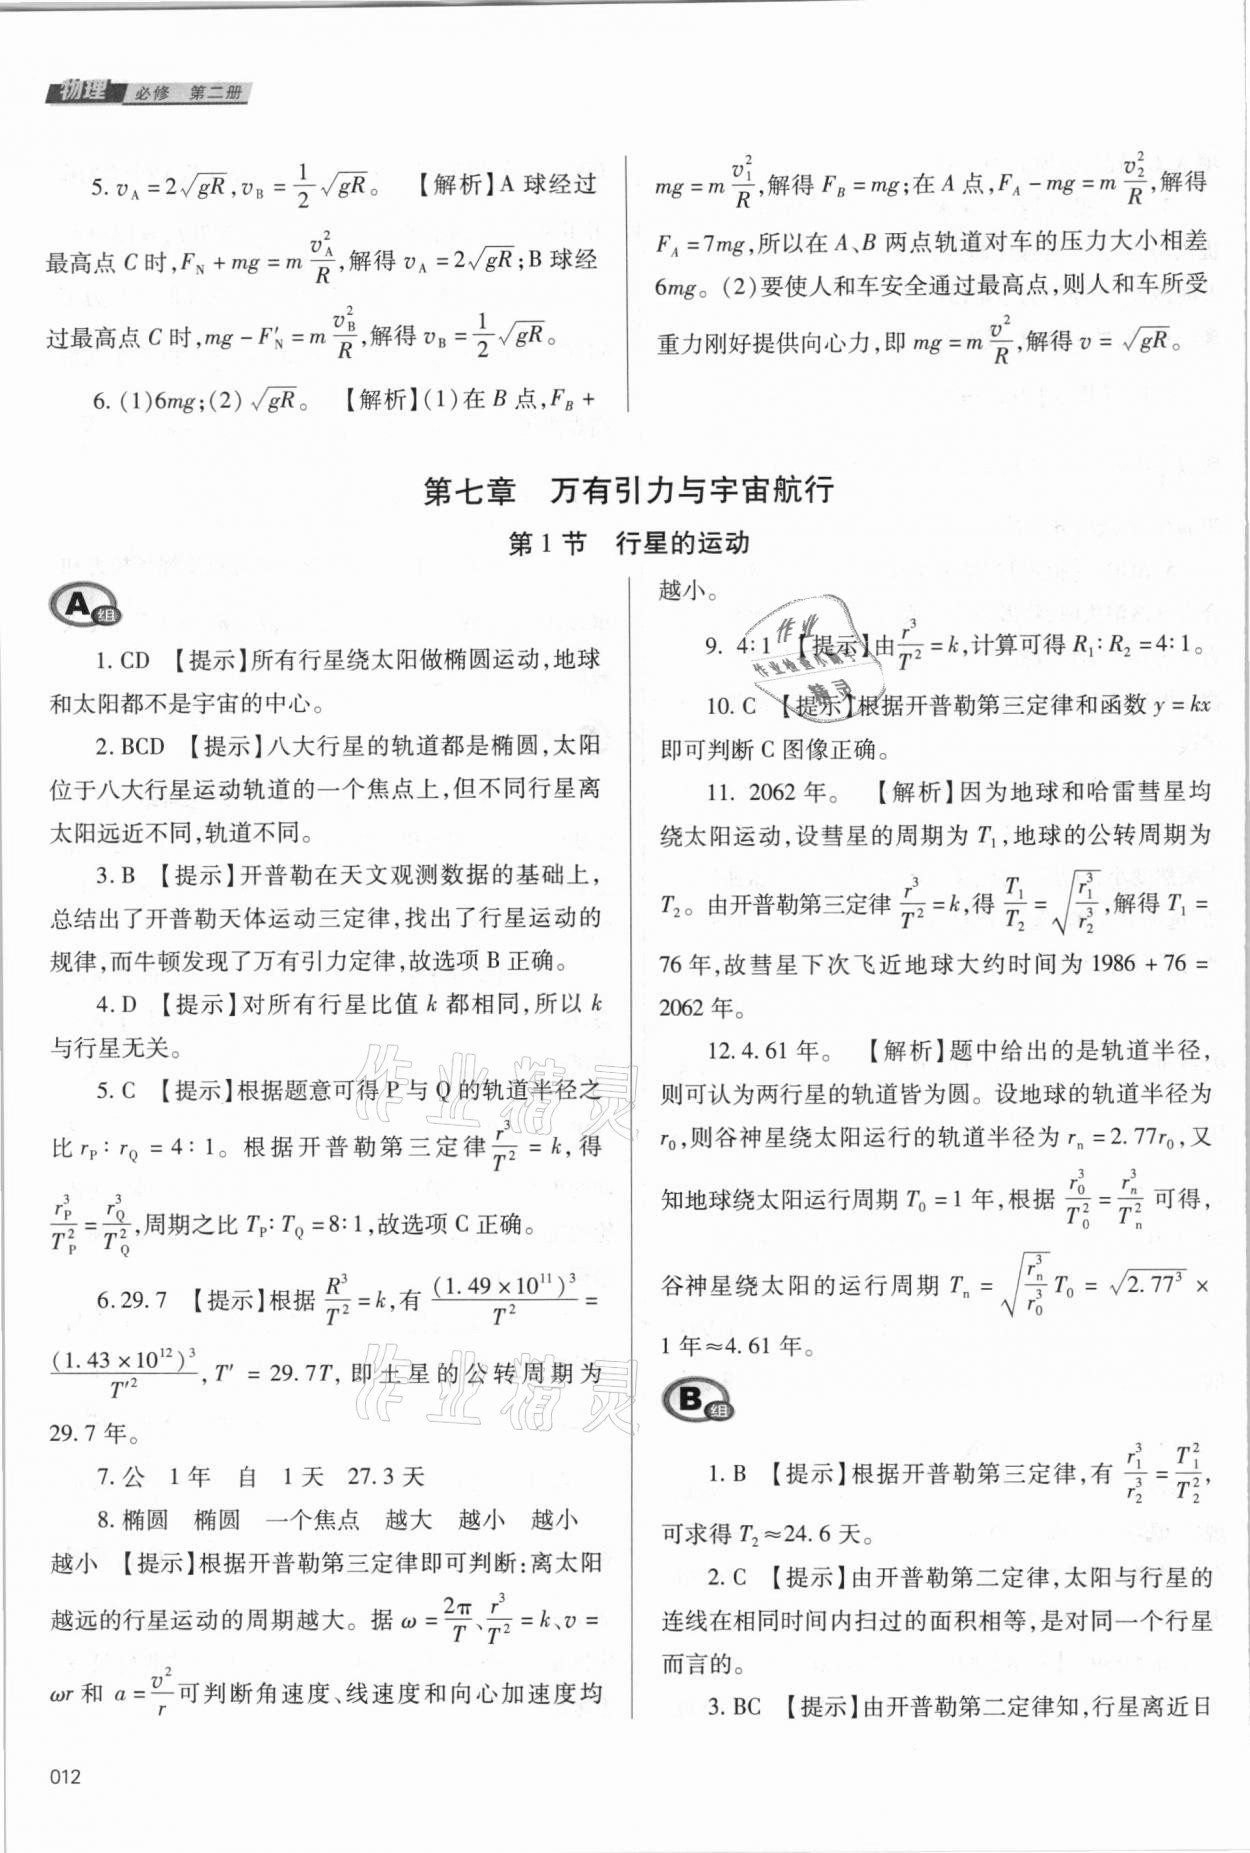 物理 必修 第二册
5. v_A = 2√(gR), v_B = 1/2 √(gR)。 【解析】A 球经过
最高点 C 时, F_N + mg = m v_A²/R, 解得 v_A = 2√(gR); B 球经
过最高点 C 时, mg - F′_N = m v_B²/R, 解得 v_B = 1/2 √(gR)。
6. (1)6mg; (2) √(gR)。 【解析】(1)在 B 点, F_B +
mg = m v₁²/R, 解得 F_B = mg; 在 A 点, F_A - mg = m v₂²/R, 解得
F_A = 7mg, 所以在 A、B 两点轨道对车的压力大小相差
6mg。(2)要使人和车安全通过最高点, 则人和车所受
重力刚好提供向心力, 即 mg = m v²/R, 解得 v = √(gR)。
第七章 万有引力与宇宙航行
第 1 节 行星的运动
A组
1. CD 【提示】所有行星绕太阳做椭圆运动, 地球
和太阳都不是宇宙的中心。
2. BCD 【提示】八大行星的轨道都是椭圆, 太阳
位于八大行星运动轨道的一个焦点上, 但不同行星离
太阳远近不同, 轨道不同。
3. B 【提示】开普勒在天文观测数据的基础上,
总结出了开普勒天体运动三定律, 找出了行星运动的
规律, 而牛顿发现了万有引力定律, 故选项 B 正确。
4. D 【提示】对所有行星比值 k 都相同, 所以 k
与行星无关。
5. C 【提示】根据题意可得 P 与 Q 的轨道半径之
比 r_P : r_Q = 4 : 1。根据开普勒第三定律 r³/T² = k, 得
r_P³/T_P² = r_Q³/T_Q², 周期之比 T_P : T_Q = 8 : 1, 故选项 C 正确。
6. 29.7 【提示】根据 R³/T² = k, 有 (1.49 × 10¹¹)³/T² =
(1.43 × 10¹²)³/T′², T′ = 29.7T, 即土星的公转周期为
29.7 年。
7. 公 1 年 自 1 天 27.3 天
8. 椭圆 椭圆 一个焦点 越大 越小 越小
越小 【提示】根据开普勒第三定律即可判断: 离太阳
越远的行星运动的周期越大。据 ω = 2π/T、r³/T² = k、v =
ωr 和 a = v²/r 可判断角速度、线速度和向心加速度均
越小。
9. 4 : 1 【提示】由 r³/T² = k, 计算可得 R₁ : R₂ = 4 : 1。
10. C 【提示】根据开普勒第三定律和函数 y = kx
即可判断 C 图像正确。
11. 2062 年。 【解析】因为地球和哈雷彗星均
绕太阳运动, 设彗星的周期为 T₁, 地球的公转周期为
T₂。由开普勒第三定律 r³/T² = k, 得 T₁/T₂ = √(r₁³/r₂³), 解得 T₁ =
76 年, 故彗星下次飞近地球大约时间为 1986 + 76 =
2062 年。
12. 4.61 年。 【解析】题中给出的是轨道半径,
则可认为两行星的轨道皆为圆。设地球的轨道半径为
r₀, 则谷神星绕太阳运行的轨道半径为 r_n = 2.77r₀, 又
知地球绕太阳运行周期 T₀ = 1 年, 根据 r₀³/T₀² = r_n³/T_n² 可得,
谷神星绕太阳的运行周期 T_n = √(r_n³/r₀³) T₀ = √(2.77³) ×
1 年 ≈ 4.61 年。
B组
1. B 【提示】根据开普勒第三定律, 有 r₁³/r₂³ = T₁²/T₂²,
可求得 T₂ ≈ 24.6 天。
2. C 【提示】由开普勒第二定律, 太阳与行星的
连线在相同时间内扫过的面积相等, 是对同一个行星
而言的。
3. BC 【提示】由开普勒第二定律知, 行星离近日
012
作业
作业检查小助手
精灵
作业精灵
作业精灵